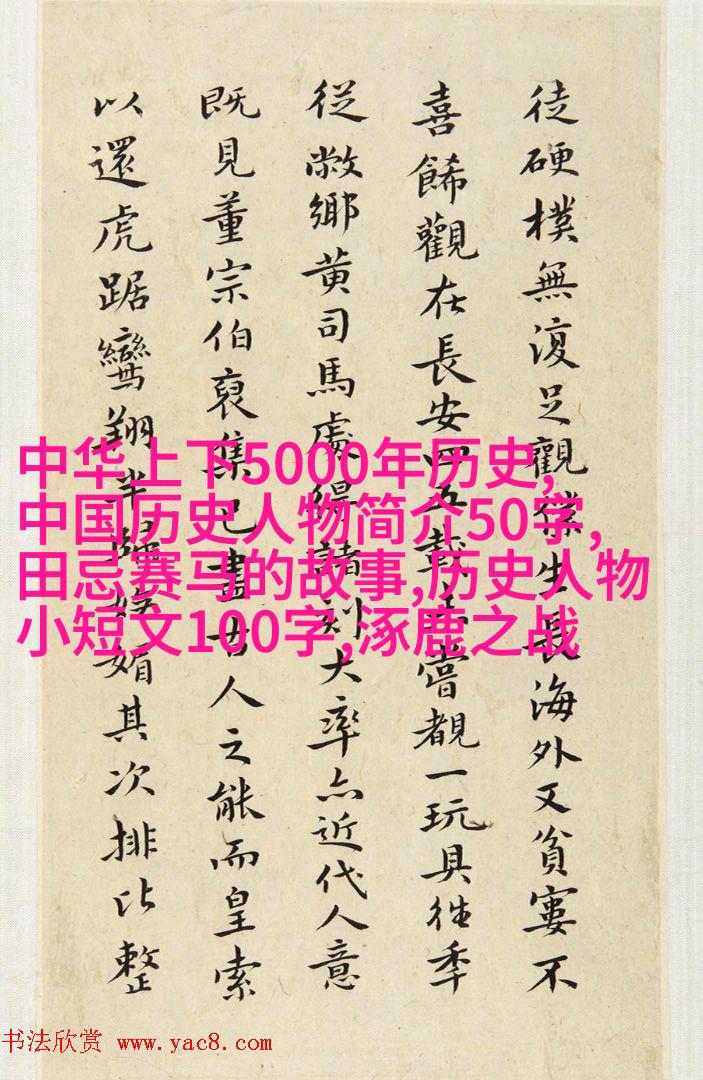 徒硬樸無復足觀僕生長海外又貧窶不
喜餙觀在長安四五載未嘗覩一玩具徃季
從敝鄉黃司馬處得諸刻大率亦近代人意
既見董宗伯裒集已盡古人之能而皇索
以還虎踞鸞翔半媚其次排比整
中华上下5000年历史,
中国历史人物简介50字,
田忌赛马的故事,历史人物
小短文100字,涿鹿之战
书法欣赏 www.yac8.com